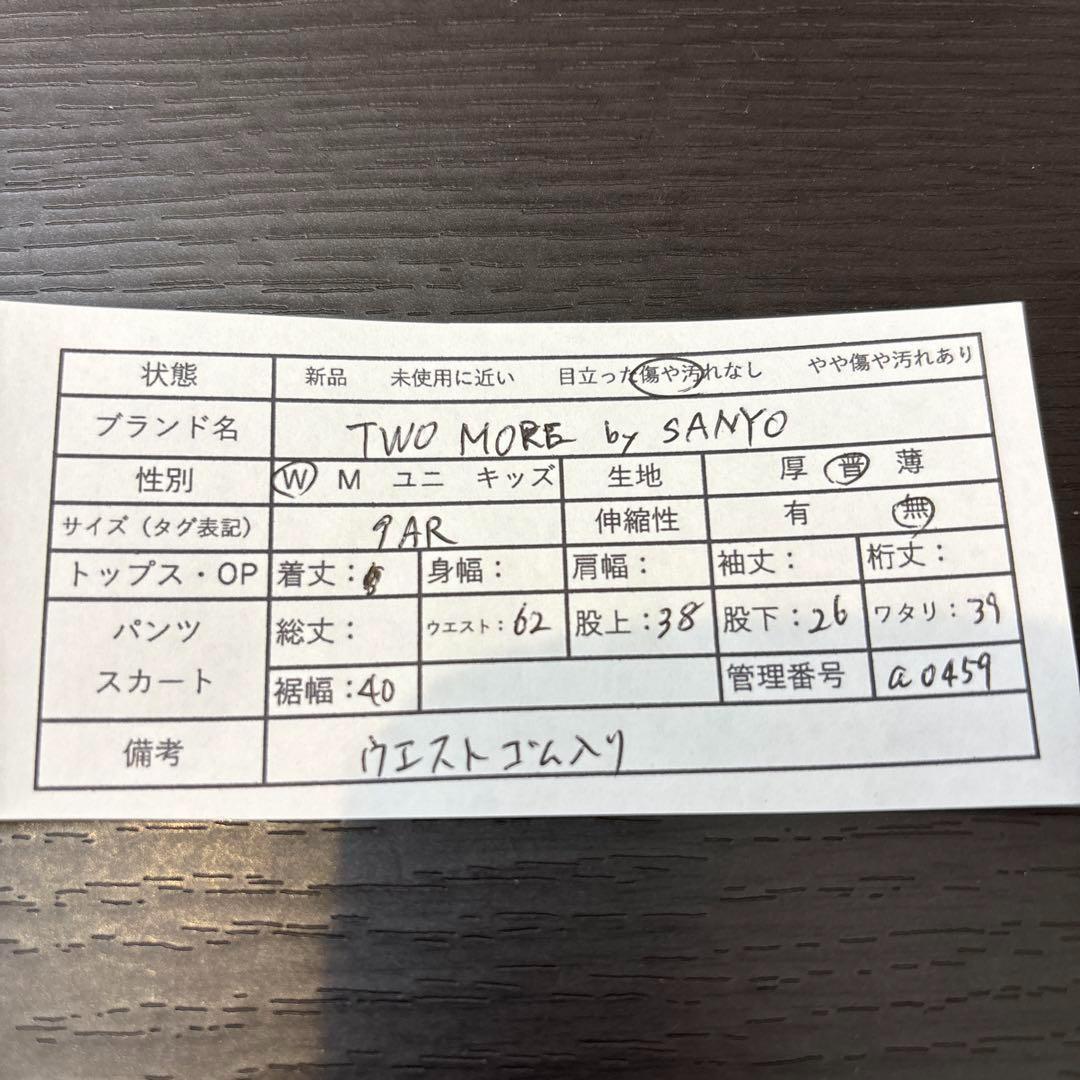 状態 新品 未使用に近い 目立った傷や汚れなし やや傷や汚れあり
ブランド名 TWO MORE by SANYO
性別 W M ユニ キッズ 生地 厚 普 薄
サイズ（タグ表記） 9AR 伸縮性 有 無
トップス・OP 着丈： 身幅： 肩幅： 袖丈： 裄丈：
パンツ 総丈： ウエスト：62 股上：38 股下：26 ワタリ：39
スカート 裾幅：40 管理番号 a0459
備考 ウエストゴム入り